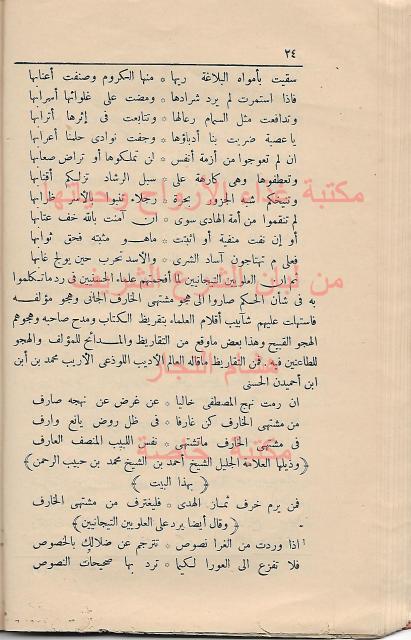 ٣٤
سقيت بأمواه البلاغة ريها * منها الكروم وصنفت أعنابها
فاذا استمرت لم يرد شرادها * ومضت على غلوائها أسرابها
وتدافعت مثل السمام رعالها * وتتابعت فى إثرها أترابها
ياعصبة ضربت بنا أدباؤها * وجفت نوادى حلمنا أعرابها
ان لم تعوجوا من أزمة أنفس * لن تملكوها أو تراض صعابها
وتعطفوها وهى كارهة على * سبل الرشاد تزلكم أقتابها
وتنيخكم شبه الجزور بحرة * رجلاء تنبو بالأمور ظرابها
لم تنقموا من أمة الهادى سوى * ان آمنت بالله خف عتابها
أو إن نفت منفية أو اثبتت * ماهو مثبته فحق ثوابها
فعلى م تهتاجون آساد الشرى * والأسد تحرب حين يولج غابها
ثم ان العلويين التيجانيين لما أفحمتهم علماء الحسنيين فى رد ماتكلموا
به فى شأن الحكم صاروا الى هجو مشتهى الخارف الجانى وهجو مؤلفه
فاستهلت عليهم شآبيب أقلام العلماء بتقريظ الكتاب ومدح صاحبه وهجوهم
الهجو القبيح وهذا بعض ماوقع من التقاريظ والمدائح للمؤلف والهجو
للطاعنين فيه فمن التقاريظ ماقاله العالم الاديب اللوذعى الاريب محمد بن أبن
ابن أحميدن الحسنى
ان رمت نهج المصطفى خاليا * عن غرض عن نهجه صارف
من مشتهى الخارف كن غارفا * فى ظل روض يانع وارف
فى مشتهى الخارف ماتشتهى * نفس اللبيب المنصف العارف
﴿وذيلها العلامة الجليل الشيخ أحمد بن الشيخ محمد بن حبيب الرحمن﴾
﴿بهذا البيت﴾
فمن يرم خرف ثمار الهدى * فليغترف من مشتهى الخارف
﴿وقال أيضا يرد على العلويين التيجانيين﴾
اذا وردت من الغرا نصوص * تترجم عن ضلالك بالخصوص
فلا تفزع الى العورا لكيما * ترد بها صحيحات النصوص
مكتبة غذاء الأرواح وحياتها
من لبان الشرع الشريف
هشام النجار
مكتبة خاصة